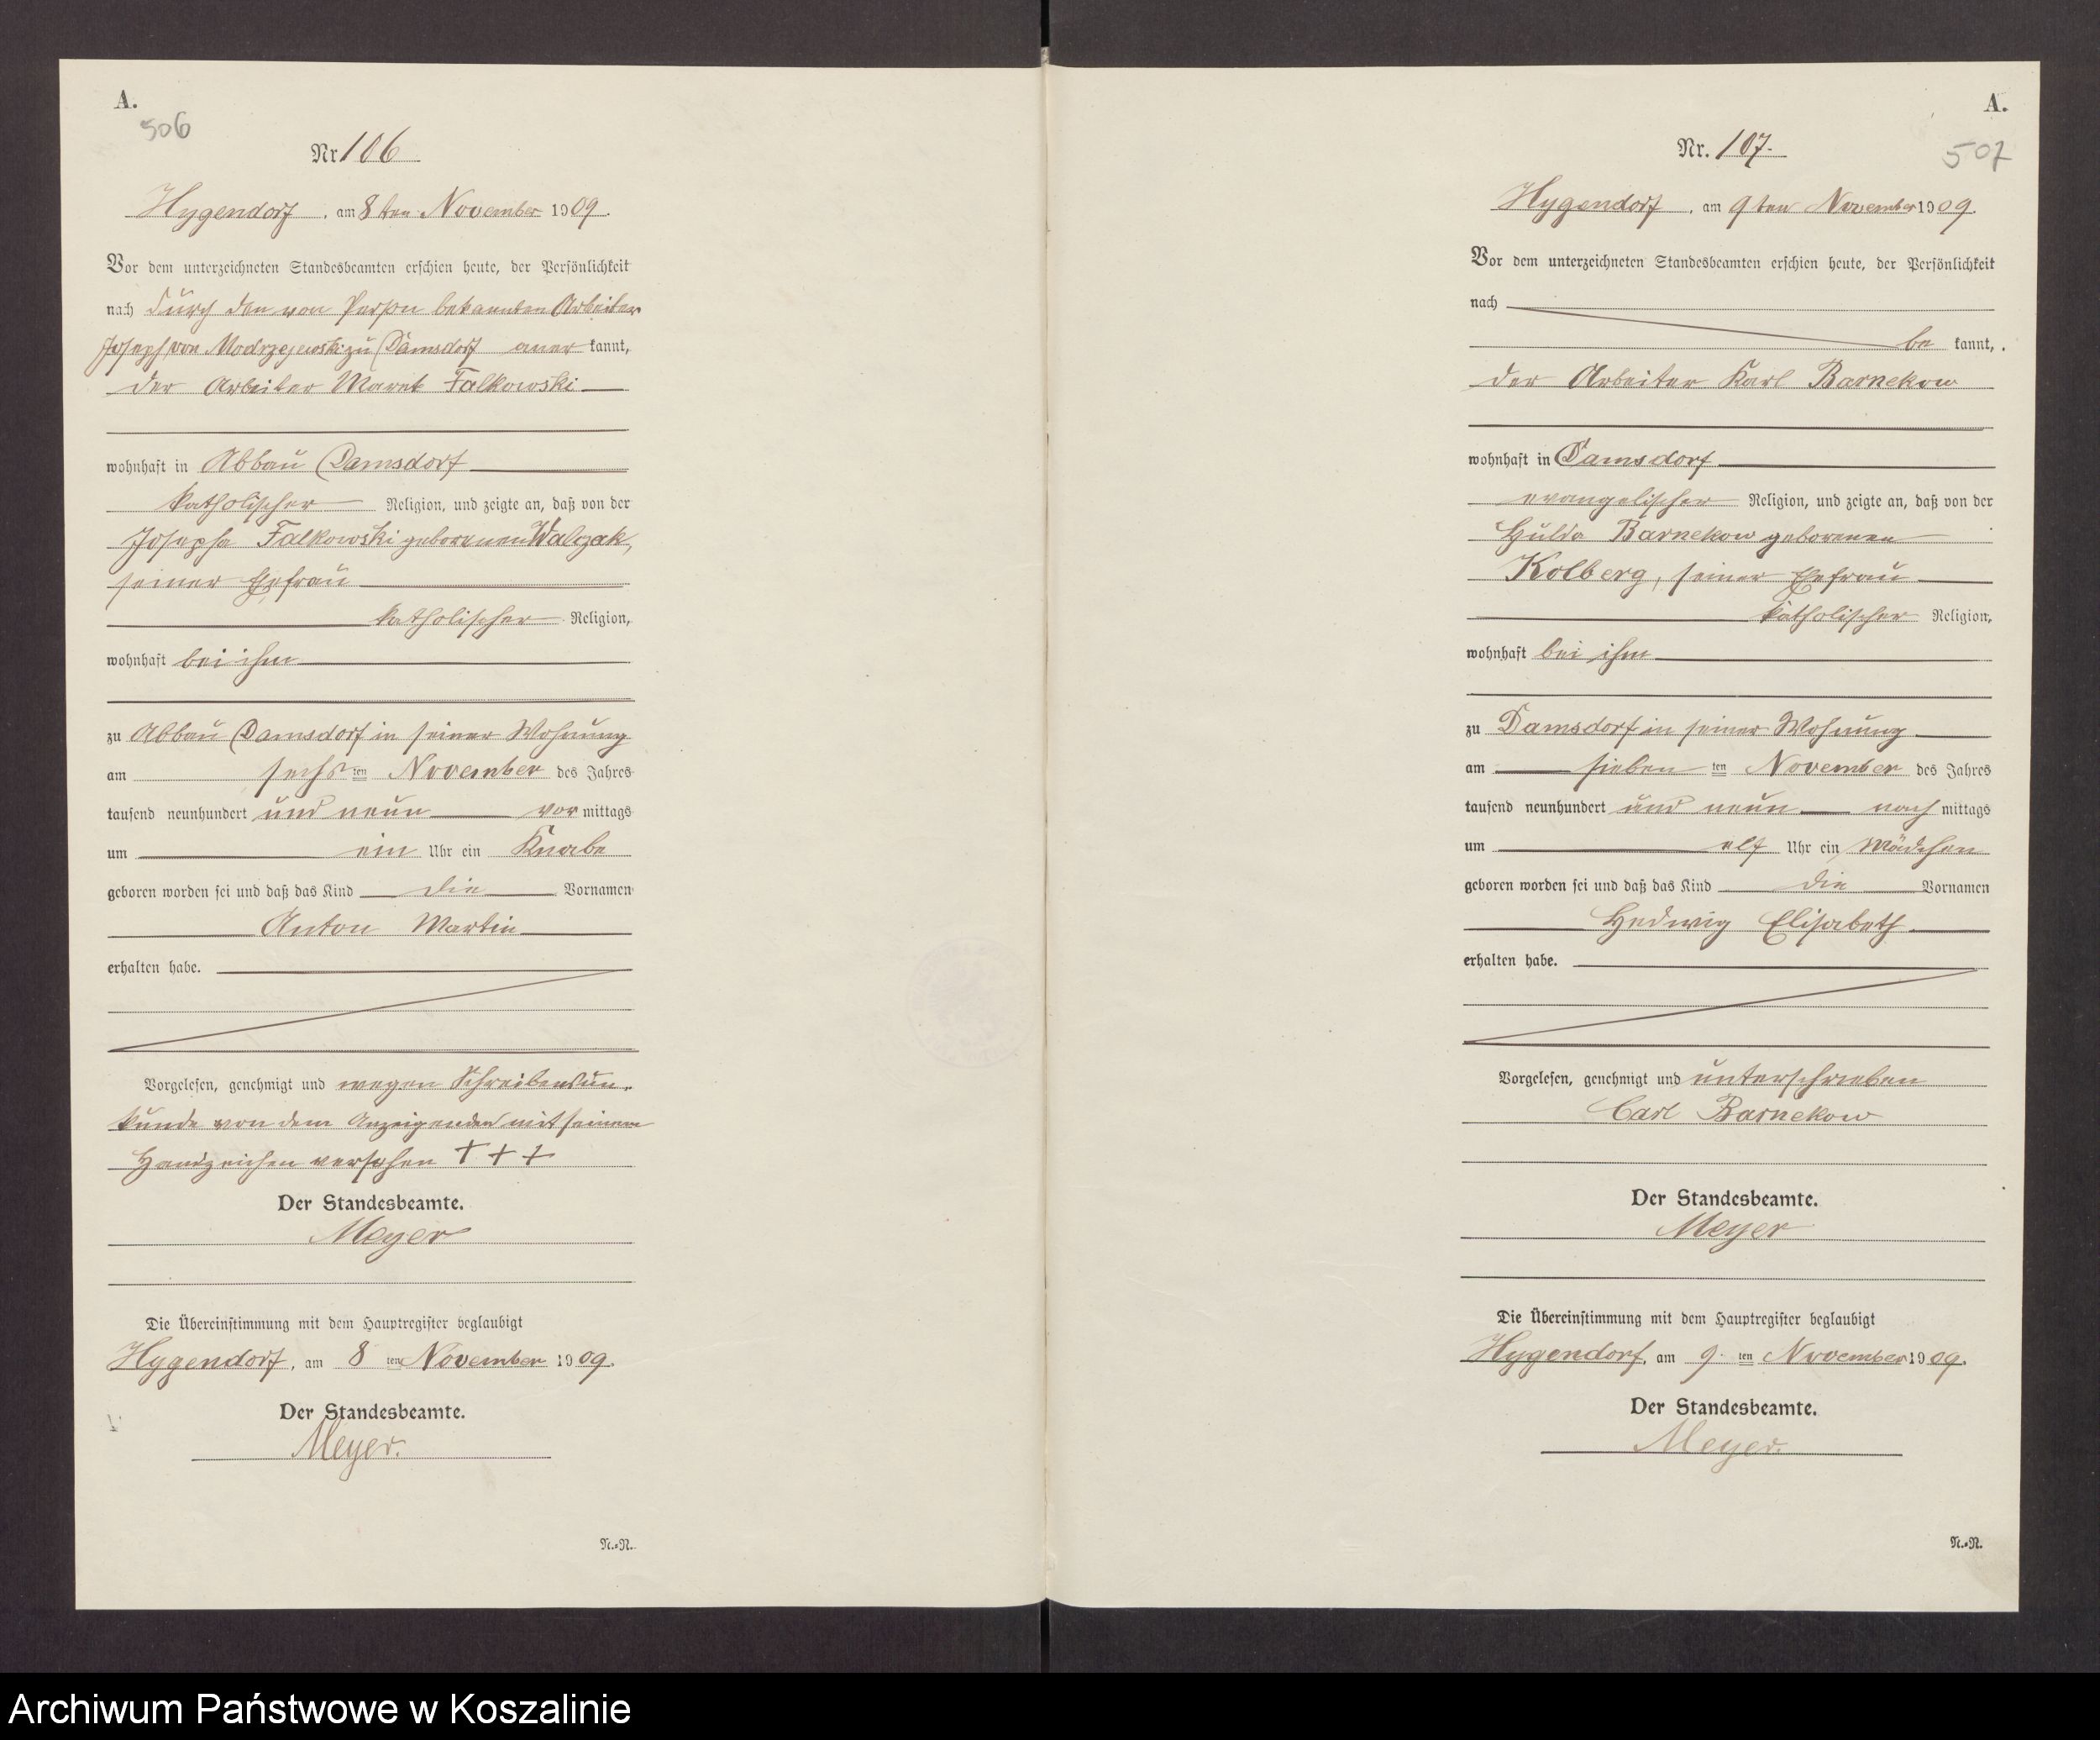 A.
506
Nr 106
Hygendorf, am 8ten November 1909.
Vor dem unterzeichneten Standesbeamten erschien heute, der Persönlichkeit
nach durch den von Person bekannten Arbeiter
Joseph von Modrzejewski zu Damsdorf anerkannt,
der Arbeiter Falkowski
wohnhaft in Abbau Damsdorf
katholischer Religion, und zeigte an, daß von der
Josepha Falkowski geborenen Walczak,
seiner Ehefrau
katholischer Religion,
wohnhaft bei ihm
zu Abbau Damsdorf in seiner Wohnung
am sechsten November des Jahres
tausend neunhundert und neun vormittags
um ein Uhr ein Knabe
geboren worden sei und daß das Kind die Vornamen
Anton Martin
erhalten habe.
Vorgelesen, genehmigt und wegen Schreibensun-
kunde von dem Anzeigenden mit seinem
Handzeichen versehen + + +
Der Standesbeamte.
Meyer
Die Übereinstimmung mit dem Hauptregister beglaubigt
Hygendorf, am 8ten November 1909.
Der Standesbeamte.
Meyer.
N.=N.
A.
507
Nr. 107.
Hygendorf, am 9ten November 1909.
Vor dem unterzeichneten Standesbeamten erschien heute, der Persönlichkeit
nach
bekannt,
der Arbeiter Karl Barnekow
wohnhaft in Damsdorf
evangelischer Religion, und zeigte an, daß von der
Hulda Barnekow geborenen
Kolberg, seiner Ehefrau
katholischer Religion,
wohnhaft bei ihm
zu Damsdorf in seiner Wohnung
am siebenten November des Jahres
tausend neunhundert und neun nachmittags
um elf Uhr ein Mädchen
geboren worden sei und daß das Kind die Vornamen
Hedwig Elisabeth
erhalten habe.
Vorgelesen, genehmigt und unterschrieben
Carl Barnekow
Der Standesbeamte.
Meyer
Die Übereinstimmung mit dem Hauptregister beglaubigt
Hygendorf, am 9.ten November 1909.
Der Standesbeamte.
Meyer.
N.=N.
Archiwum Państwowe w Koszalinie